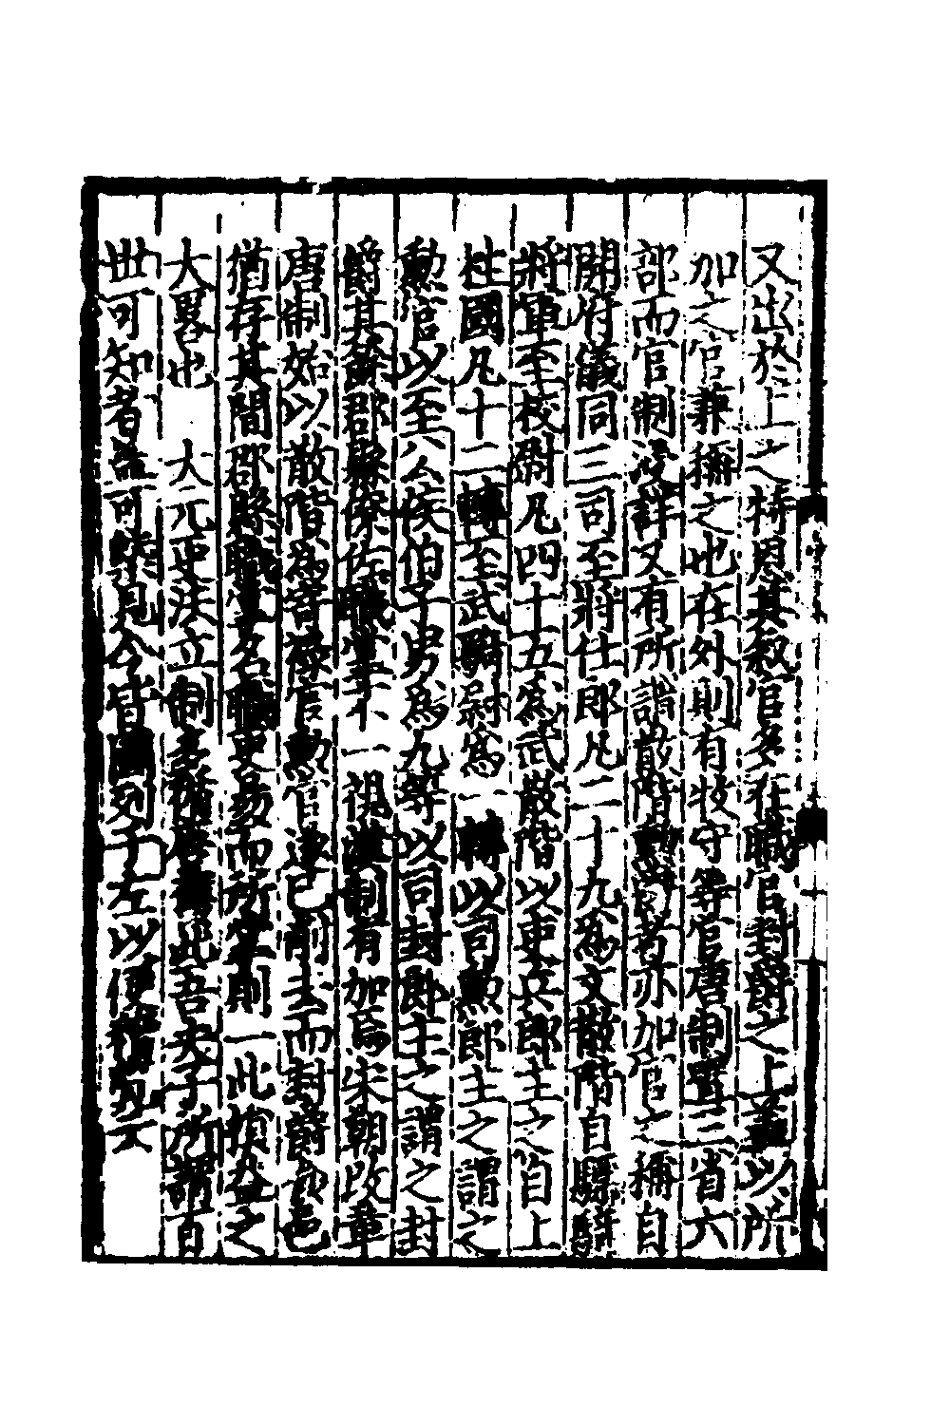 又出於上之特恩其敘官多在職官封爵之上蓋以所
加之官兼稱之也在外則有牧守等官唐制置三省六
部而官制浸詳又有所謂散階勳爵者亦加官之稱自
開府儀同三司至將仕郎凡二十九為文散階自驃騎
將軍至校尉凡四十五為武散階以吏兵郎主之自上
柱國凡十二轉至武騎尉為一轉以司勳郎主之謂之
勳官以至公侯伯子男為九等以司封郎主之謂之封
爵其餘郡縣僚佐職掌不一視漢制有加焉宋朝改章
唐制始以散階為寄祿官勳官遂已削去而封爵食邑
猶存其間郡縣職掌名雖更易而所掌則一此損益之
大畧也　大元更法立制多循唐舊此吾夫子所謂百
世可知者蓋可槩見今皆圖列于左以便稽覽云